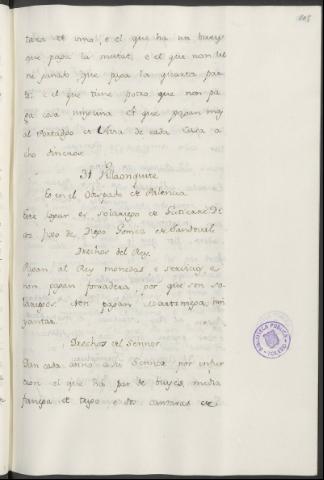 105
taxa et vino, e el que ha un buey
que paga la mitat, e el que non ha
ganado que paga la quarta par
te e el que tiene potro que non pa
ga cosa ninguna. Et que pagan mas
al Portadgo et de cada casa o
cho dineros.
Villaonquite
Es en el Obispado de Palencia
este logar es solariego de Gutierre Di
az fijo de Diego Gomes de Sandoval
Drechos del Rey.
Pagan al Rey monedas e servicio e
non pagan fonsadera, por que son so
lariegos. Non pagan martiniega, nin
yantar.
Drechos del Sennor.
Dan cada anno a su Sennor por infur
cion el que ha par de bueyes, media
fanega et trigo e dos cantaras de
BIBLIOTECA PUBLICA
TOLEDO